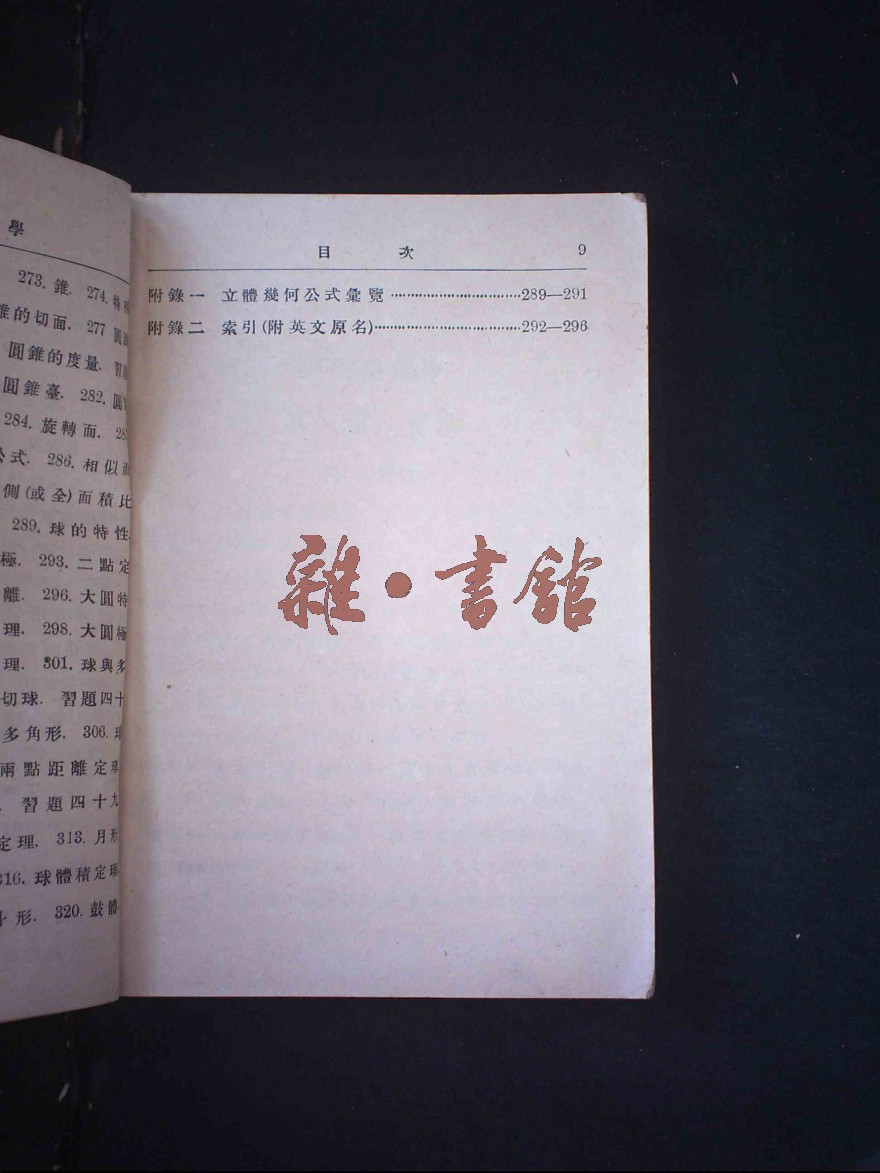 學
273. 錐. 274.
錐的切面. 277
圓錐的度量.
圓錐臺. 282.
284. 旋轉面.
公式. 286. 相似
側(或全)面積比
289. 球的特性
極. 293. 二點定
離. 296. 大圓特
理. 298. 大圓極
理. 301. 球與多
切球. 習題四十
多角形. 306.
兩點距離定
習題四十九
定理. 313. 月形
316. 球體積定理
形. 320. 鼓體
目 次 9
附錄一 立體幾何公式彙覽 ······························289—291
附錄二 索引(附英文原名)··································292—296
雜·書館